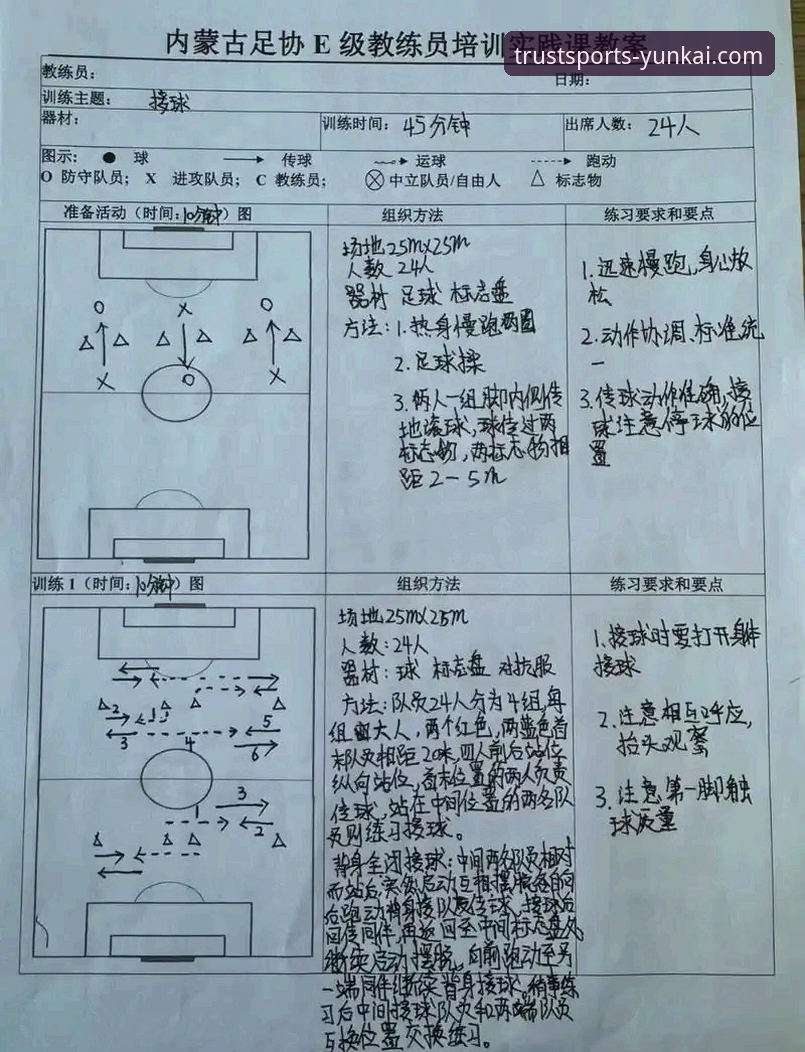 内蒙古足协 E 级教练员培训实践课教案
trustsports-yunkai.com
教练员：
日期：
训练主题： 接球
器材：
训练时间： 45分钟
出席人数： 24人
图示： ● 球 传球 运球 跑动
O 防守队员； X 进攻队员； C 教练员； 中立队员/自由人 △ 标志物
准备活动（时间：10分钟）图
组织方法
练习要求和要点
场地25m×25m
人数 24人
器材 足球 标志盘
方法：1.热身慢跑两圈
2.足球操
3.俩人一组脚内侧传
地滚球，球传过两
标志物，两标志物相
距2-5m
1.迅速慢跑，身心放
松
2.动作协调、标准统
一
3.传球动作准确，接
球注意停球的位
置
O X O
X O X
训练 1（时间：10分钟）图
组织方法
练习要求和要点
场地25m×25m
人数：24人
器材：球 标志盘 对抗服
方法：队员24人分为4组，每
组六人，两个红色，两蓝色首
末队员相距20米，四人前后站位
纵向站位，首末位置的两人负责
传球，站在中间位置的两名队
员则练习接球。
背身全闭接球：中间两名队员相对
而站后，突然启动互相摆脱各自向
后跑动背身接队友传球，接球后
回传同伴，再返回至中间标志盘处
继续启动摆脱，向前跑动至另
一端同伴继续背身接球，稍事练
习后中间接球队员和两端队员
互换位置交换练习。
1.接球时要打开身体
接球
2.注意相互呼应，
抬头观察
3.注意第一脚触
球质量
2 1 5
3 4 6
3
1 2